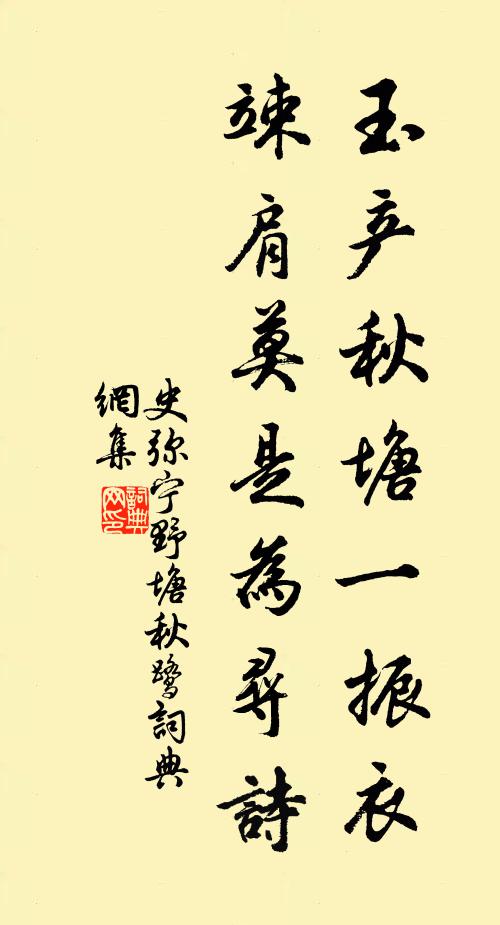 玉立秋塘一振衣
竦肩莫是為尋詩
史弥宁野塘秋鹭詞典
網集
詞典网印